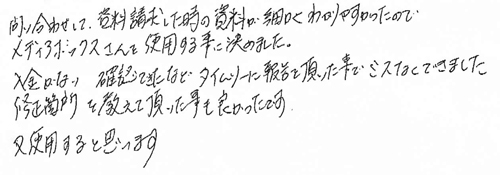 問い合わせして、資料請求した時の資料が細かくわかりやすかったので
メディアボックスさんを使用する事に決めました。
入金がない 確認できたなど タイムリーに報告で頂いた事でミスなくできました
修正箇所を教えて頂いた事も良かったです
又使用すると思います